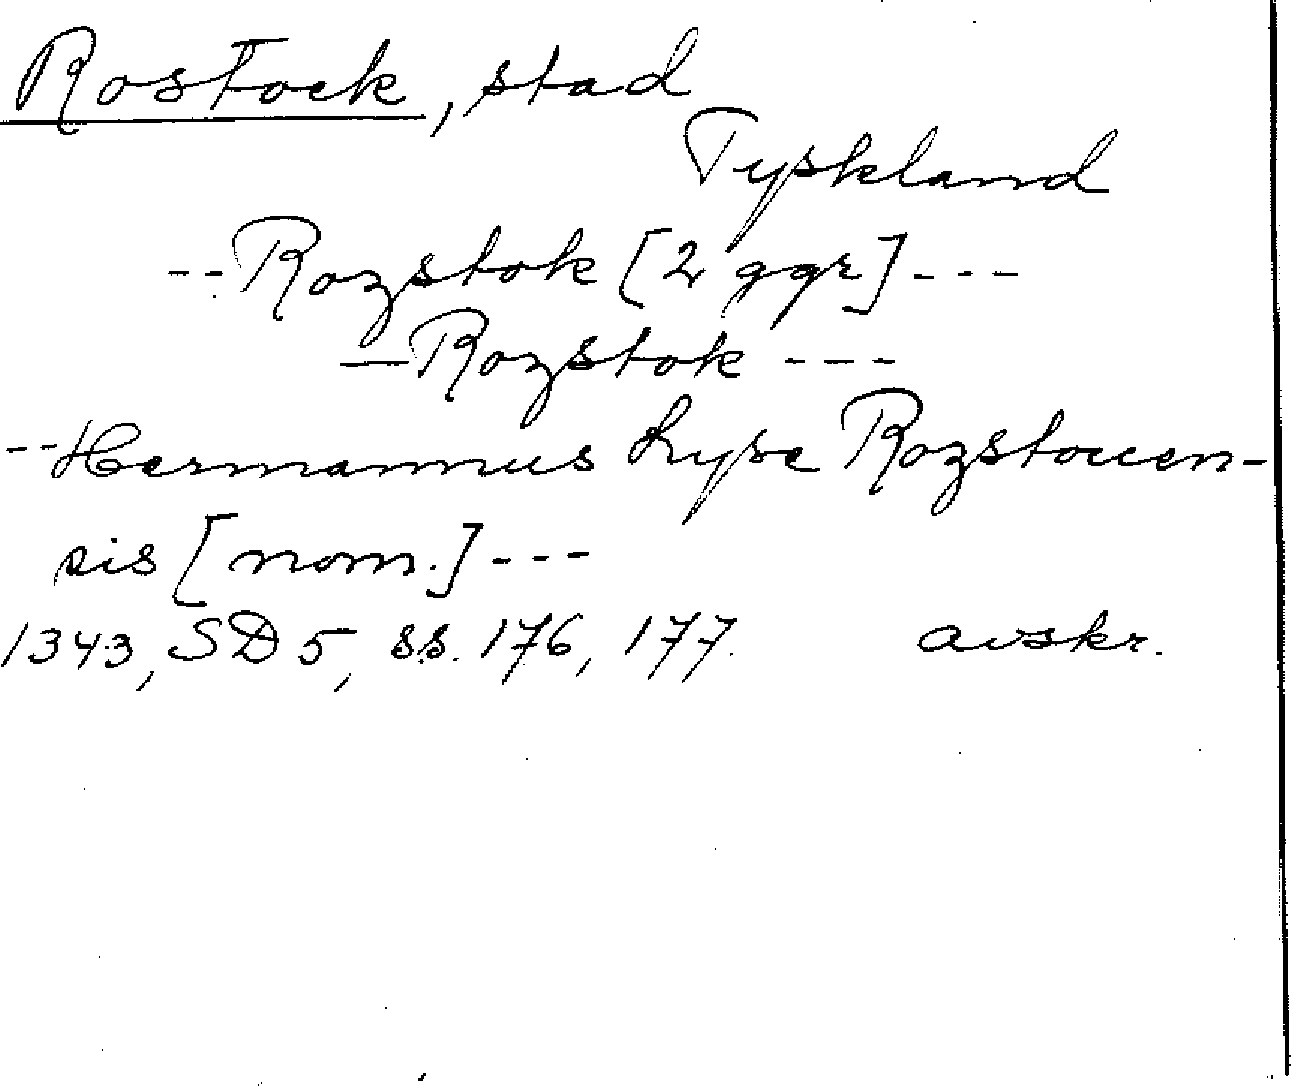 Rostock, stad
Tyskland
--Rozstok [2 ggr]---
—Rozstok ---
--Hermannus Lyse Rozstoccen-
sis [nom.]---
1343, SD 5, ss. 176, 177. avskr.